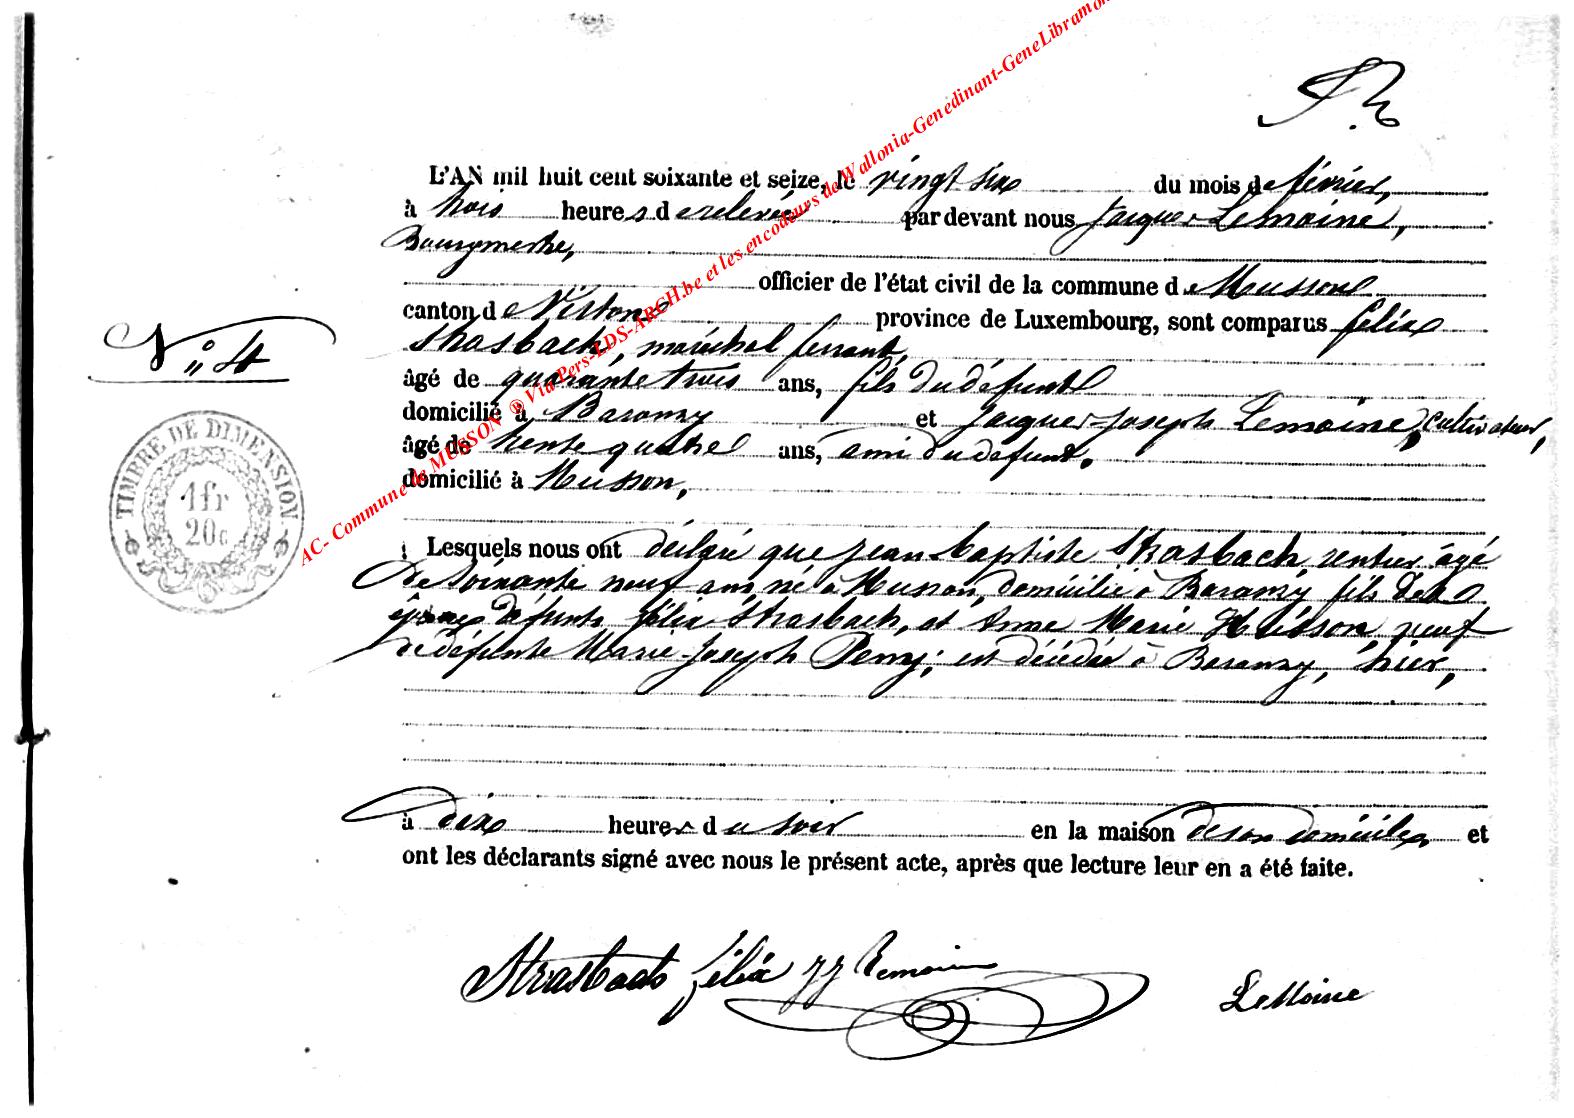 L'AN mil huit cent soixante et seize, le vingt six du mois de février,
à trois heures de relevée par devant nous Jacques Lemoine,
Bourgmestre,
officier de l'état civil de la commune de Musson
canton de Virton province de Luxembourg, sont comparus félix
Strasbach, maréchal ferrant,
âgé de quarante trois ans, fils du défunt
domicilié à Baranzy et Jacques-Joseph Lemoine, cultivateur,
âgé de trente quatre ans, ami du défunt,
domicilié à Musson,
N° 4
TIMBRE DE DIMENSION
1fr
20c
Lesquels nous ont déclaré que jean baptiste Strasbach, rentier âgé
de soixante neuf ans, né à Musson, domicilié à Baranzy fils des
époux défunts félix Strasbach, et Anne Marie Husson, veuf
de défunte Marie-Joseph Perry; est décédé à Baranzy, hier,
à dix heures du soir en la maison de son domicile et
ont les déclarants signé avec nous le présent acte, après que lecture leur en a été faite.
Strasbach félix JJ Lemoine LeMoine
AC- Commune de MUSSON ® Via Pers-LDS-ARCH.be et les encodeurs de Wallonia-Genedinant-GeneLibramon